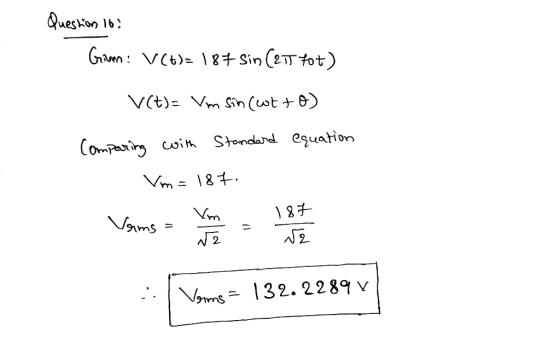 Question 16:
Given: V(t) = 187 Sin(2π70t)
V(t) = Vm Sin(ωt + θ)
Comparing with Standard equation
Vm = 187.
Vrms = Vm/√2 = 187/√2
∴ Vrms = 132.2289 V